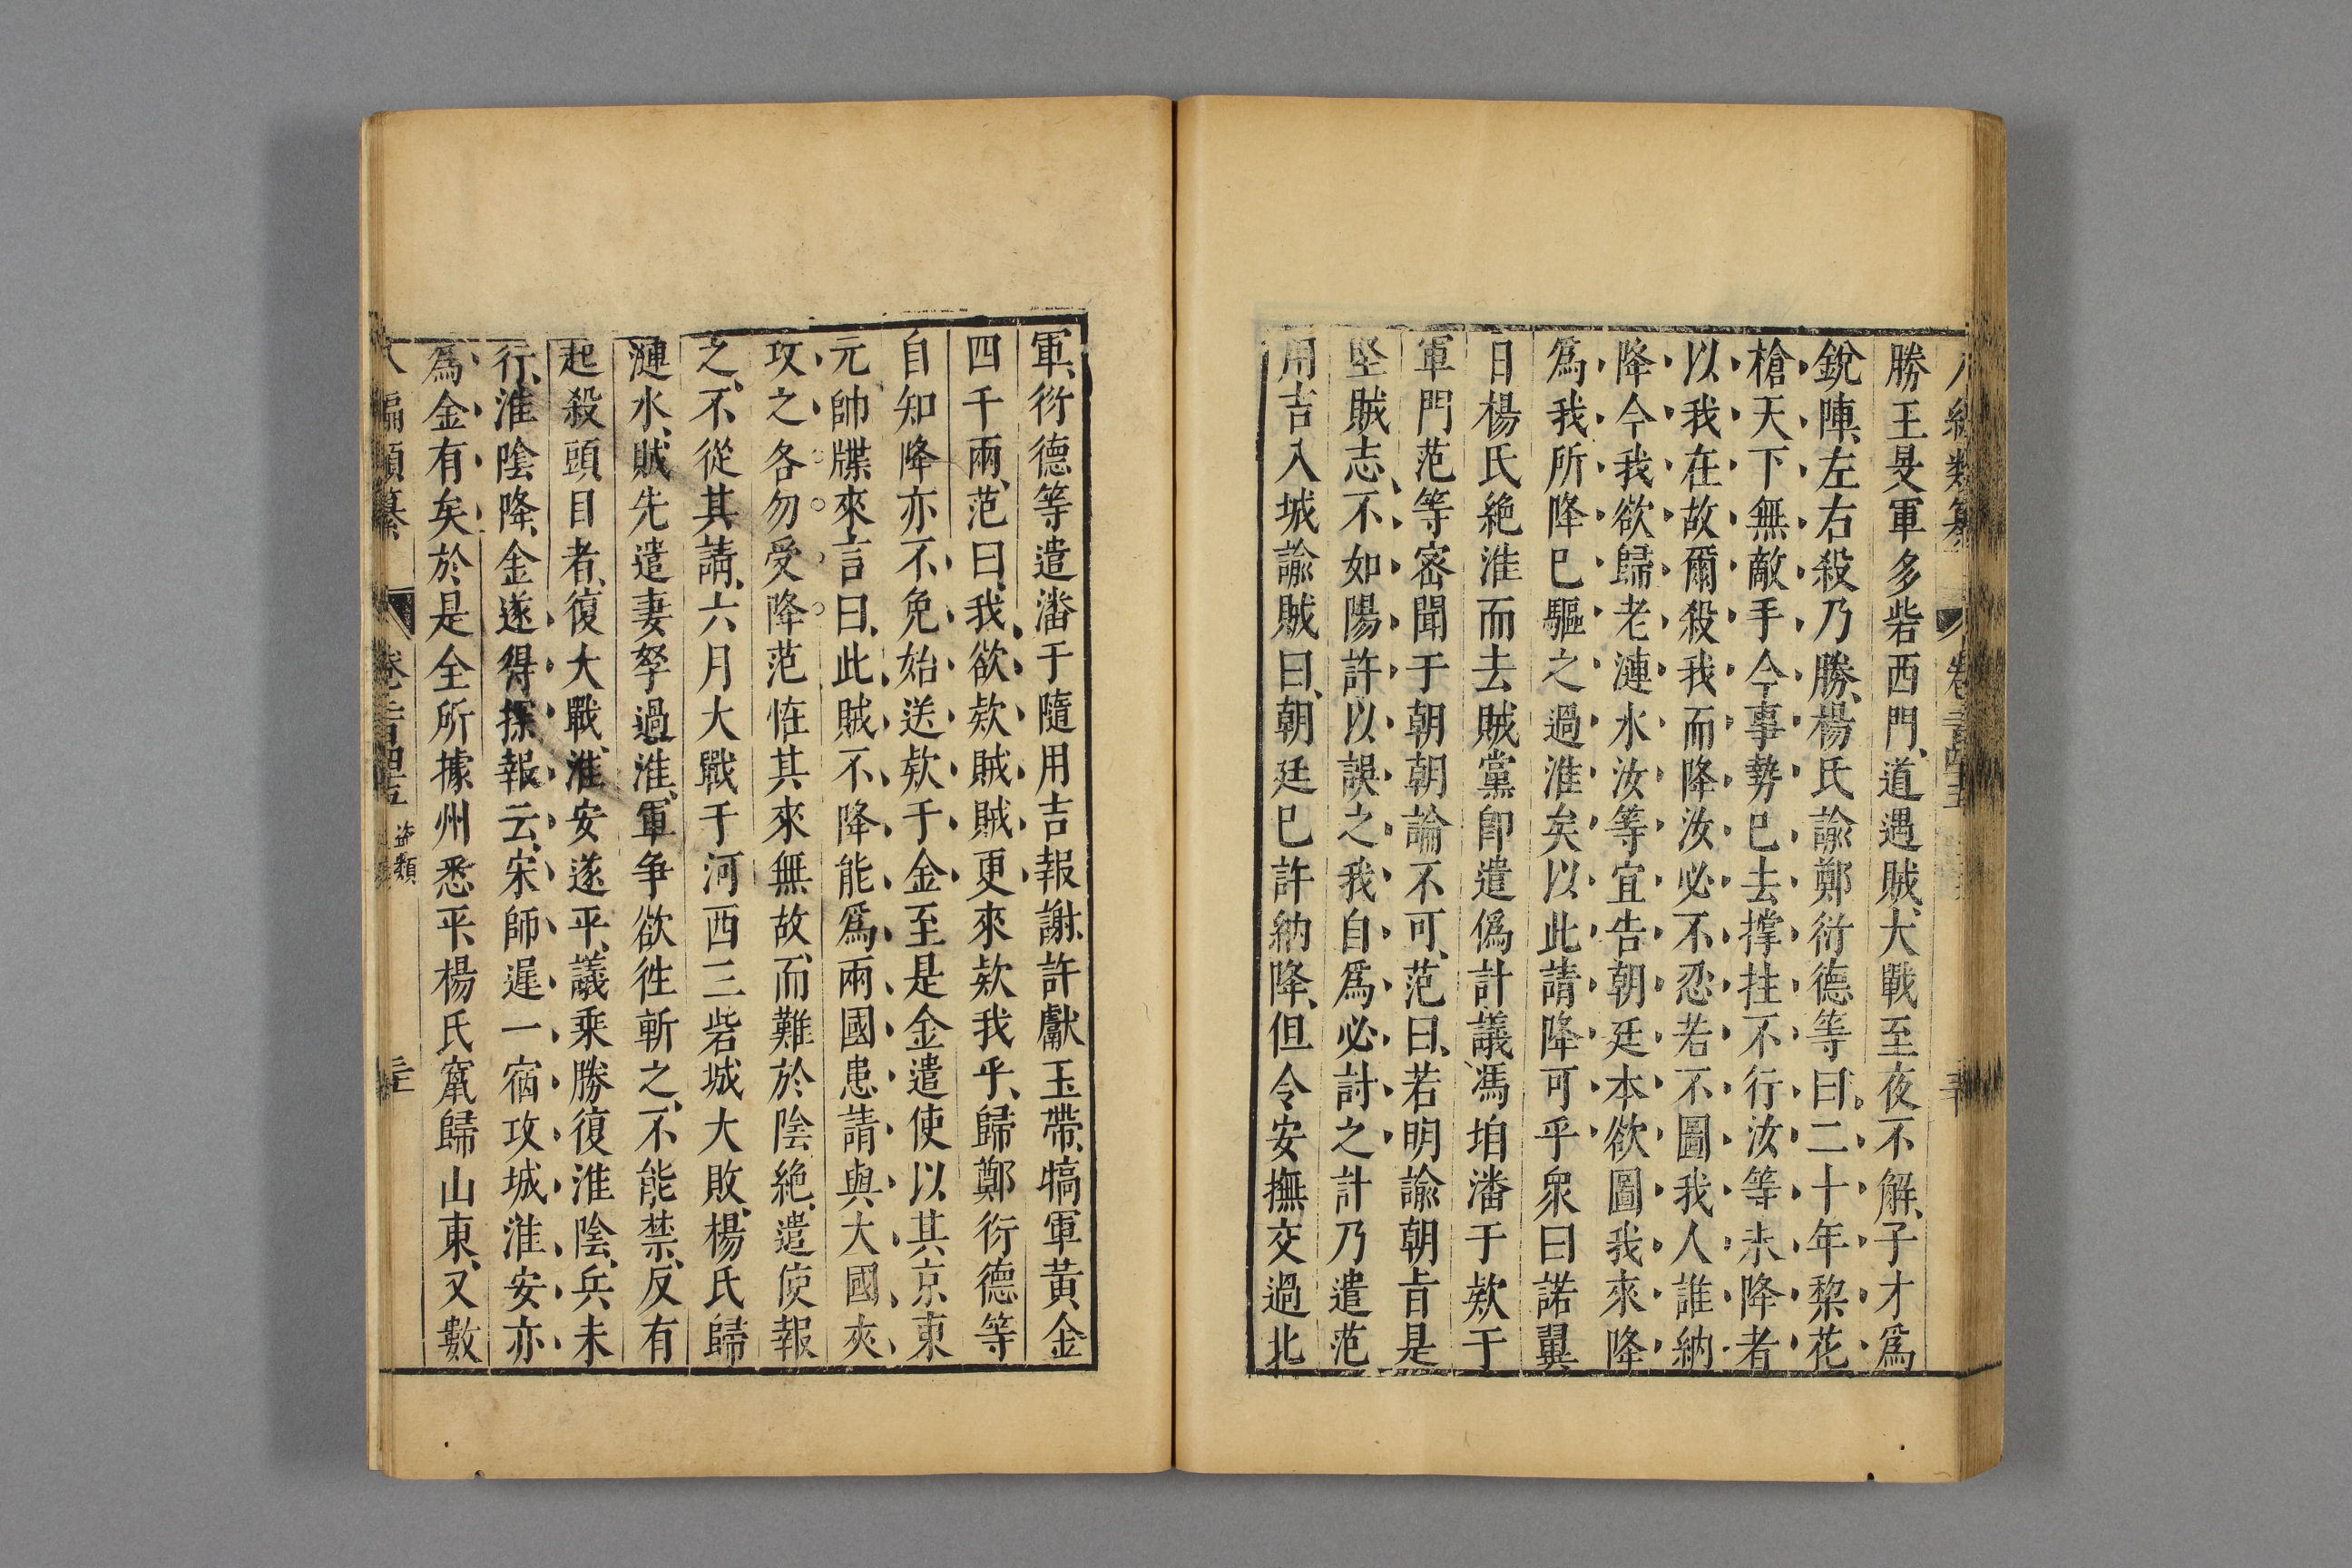 勝王旻軍多砦西門道遇賊大戰至夜不解子才爲
銳陣左右殺乃勝楊氏諭鄭衍德等曰二十年棃花
槍天下無敵手今事勢已去撑拄不行汝等未降者
以我在故爾殺我而降汝必不忍若不圖我人誰納
降今我欲歸老漣水汝等宜告朝廷本欲圖我來降
爲我所降已驅之過淮矣以此請降可乎衆曰諾翼
日楊氏絶淮而去賊黨卽遣僞計議馮垍潘于欵于
軍門范等密聞于朝朝論不可范曰若明諭朝旨是
堅賊志不如陽許以誤之我自爲必討之計乃遣范
用吉入城諭賊曰朝廷已許納降但令安撫交過北
軍衍德等遣潘于隨用吉報謝許獻玉帶犒軍黃金
四千兩范曰我欲欵賊賊更來欵我乎歸鄭衍德等
自知降亦不免始送欵于金至是金遣使以其京東
元帥牒來言曰此賊不降能爲兩國患請與大國夾
攻之各勿受降范恠其來無故而難於陰絶遣使報
之不從其請六月大戰于河西三砦城大敗楊氏歸
漣水賊先遣妻孥過淮軍争欲徃斬之不能禁反有
起殺頭目者復大戰淮安遂平議乘勝復淮陰兵未
行淮陰降金遂得探報云宋師遲一宿攻城淮安亦
爲金有矣於是全所據州悉平楊氏竄歸山東又數
八編類纂 卷二百四五 盗類